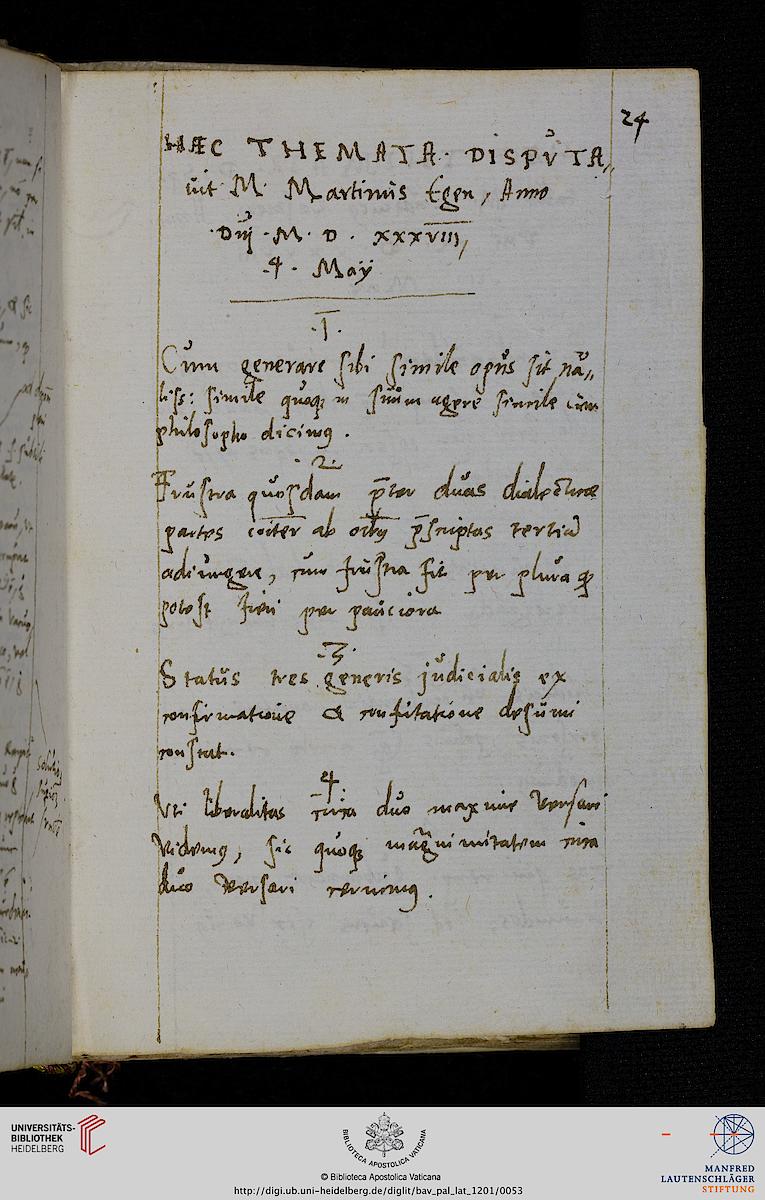 24
HÆC THEMATA. DISPVTA„
uit M. Martinus Egen, Anno
Dnj. M. D. xxxviii,
4. Maÿ
.1.
Cum generare sibi simile opus sit na„
liss: simile quoqꝫ in suum agere simile cum
philosopho dicimꝰ.
.2.
Frustra quosdam p̄ter duas dialecticæ
partes coiter ab oibꝰ p̄scriptas tertiā
adiungere, cum frustra fit per plura qd
potest fieri per pauciora
.3.
Status tres generis judicialis ex
confirmatione & confutatione desumi
constat.
4
Vti liberalitas circa duo maxime versari
videmꝰ, sic quoqꝫ magnimitatem circa
duo versari cernimꝰ.
UNIVERSITÄTS-
BIBLIOTHEK
HEIDELBERG
BIBLIOTHECA APOSTOLICA VATICANA
© Biblioteca Apostolica Vaticana
http://digi.ub.uni-heidelberg.de/diglit/bav_pal_lat_1201/0053
MANFRED
LAUTENSCHLÄGER
STIFTUNG